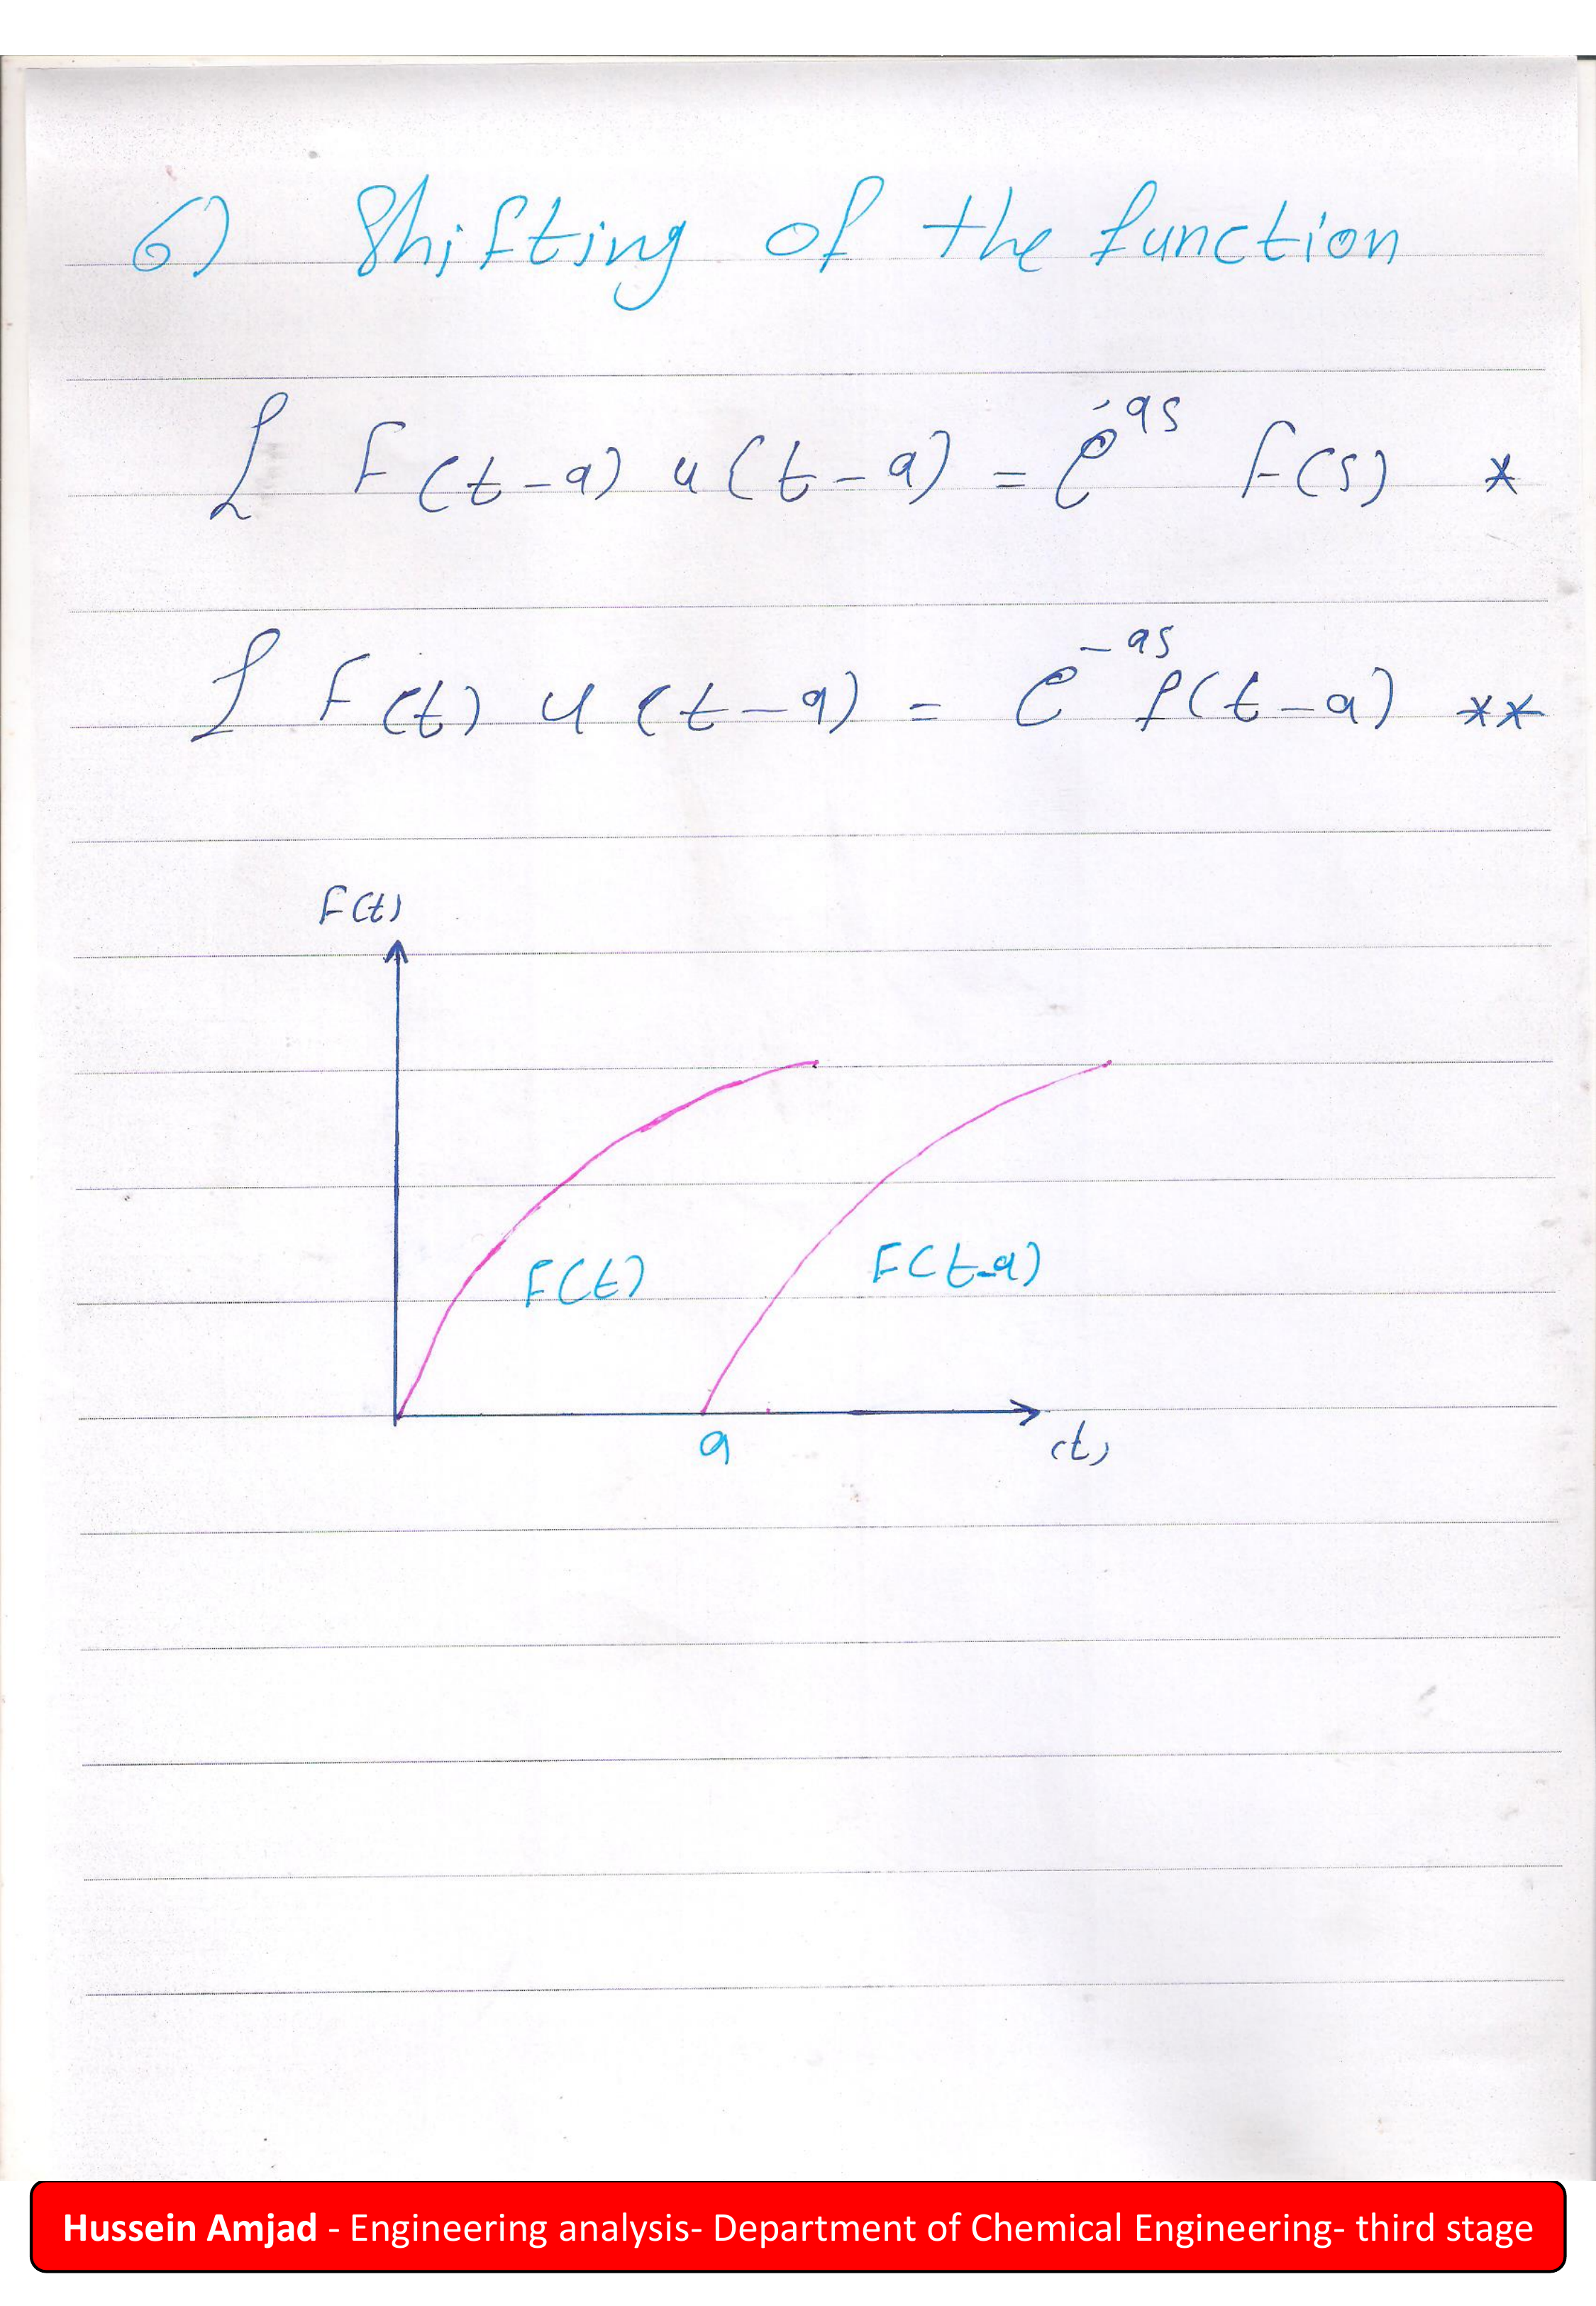 6) Shifting of the function
ℒ F(t-a) u(t-a) = e^-as F(s) *
ℒ F(t) u(t-a) = e^-as f(t-a) **
F(t)
F(t)
F(t-a)
a
(t)
Hussein Amjad - Engineering analysis- Department of Chemical Engineering- third stage